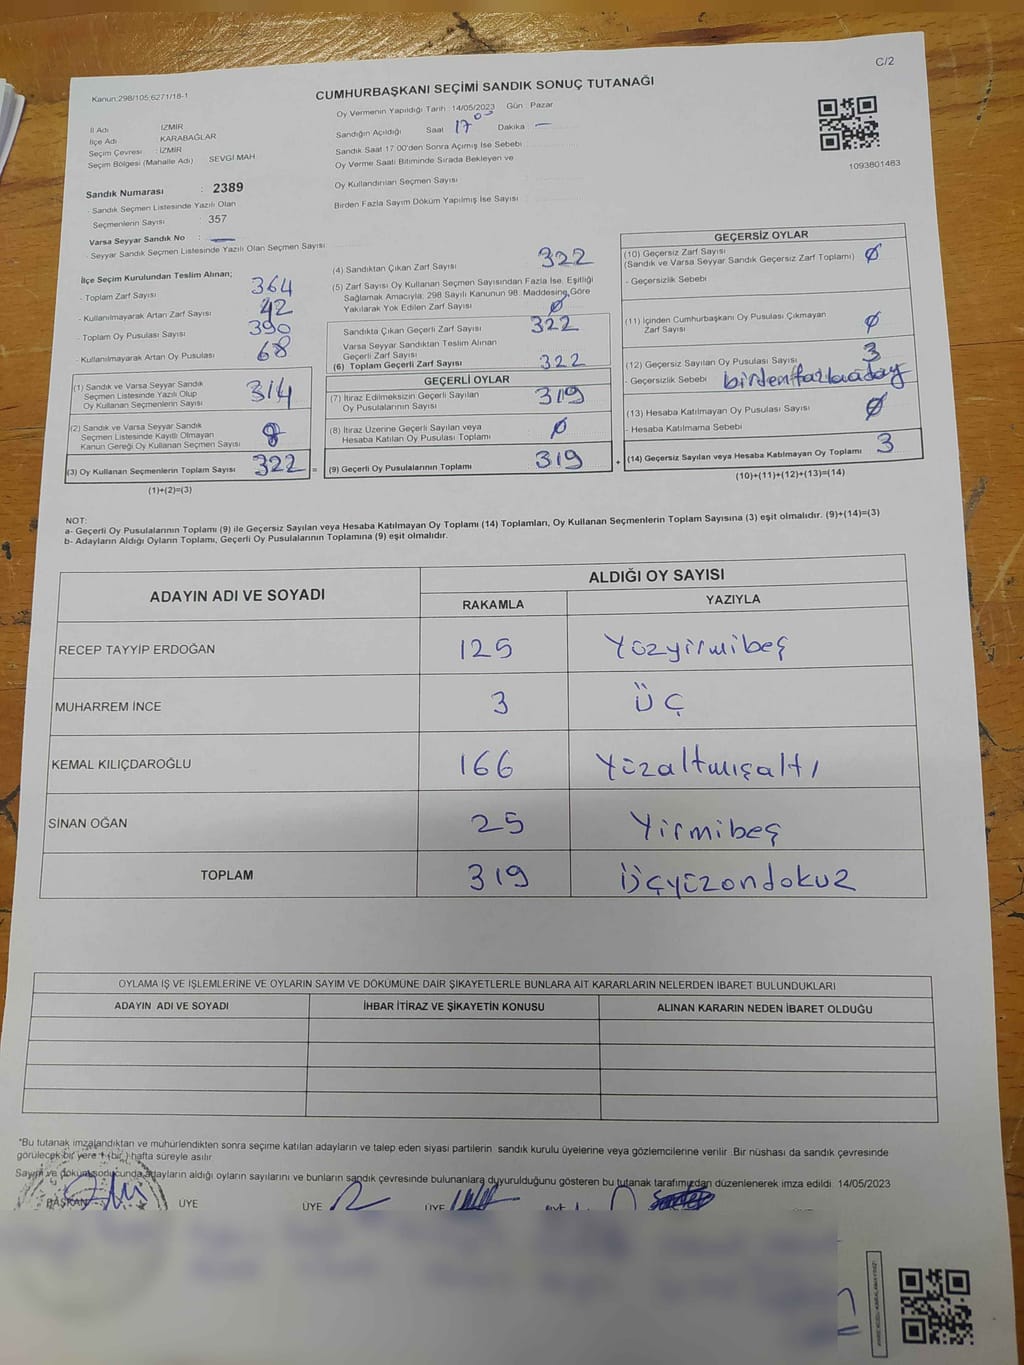 C/2
Kanun:298/105;6271/18-1
CUMHURBAŞKANI SEÇİMİ SANDIK SONUÇ TUTANAĞI
Oy Vermenin Yapıldığı Tarih : 14/05/2023 Gün : Pazar
İl Adı : İZMİR
İlçe Adı : KARABAĞLAR
Seçim Çevresi : İZMİR
Seçim Bölgesi (Mahalle Adı) SEVGİ MAH
Sandığın Açıldığı Saat 17 05 Dakika : —
Sandık Saat 17:00'den Sonra Açımış İse Sebebi
Oy Verme Saati Bitiminde Sırada Bekleyen ve
Oy Kullandırılan Seçmen Sayısı
Birden Fazla Sayım Döküm Yapılmış İse Sayısı
1093801483
Sandık Numarası : 2389
- Sandık Seçmen Listesinde Yazılı Olan
Seçmenlerin Sayısı : 357
Varsa Seyyar Sandık No : —
- Seyyar Sandık Seçmen Listesinde Yazılı Olan Seçmen Sayısı
İlçe Seçim Kurulundan Teslim Alınan;
- Toplam Zarf Sayısı 364
- Kullanılmayarak Artan Zarf Sayısı 42
- Toplam Oy Pusulası Sayısı 390
- Kullanılmayarak Artan Oy Pusulası 68
(1) Sandık ve Varsa Seyyar Sandık
Seçmen Listesinde Yazılı Olup
Oy Kullanan Seçmenlerin Sayısı 314
(2) Sandık ve Varsa Seyyar Sandık
Seçmen Listesinde Kayıtlı Olmayan
Kanun Gereği Oy Kullanan Seçmen Sayısı 8
(3) Oy Kullanan Seçmenlerin Toplam Sayısı 322 =
(1)+(2)=(3)
(4) Sandıktan Çıkan Zarf Sayısı 322
(5) Zarf Sayısı Oy Kullanan Seçmen Sayısından Fazla İse, Eşitliği
Sağlamak Amacıyla; 298 Sayılı Kanunun 98. Maddesine Göre
Yakılarak Yok Edilen Zarf Sayısı Ø
Sandıkta Çıkan Geçerli Zarf Sayısı 322
Varsa Seyyar Sandıktan Teslim Alınan
Geçerli Zarf Sayısı
(6) Toplam Geçerli Zarf Sayısı 322
GEÇERLİ OYLAR
(7) İtiraz Edilmeksizin Geçerli Sayılan
Oy Pusulalarının Sayısı 319
(8) İtiraz Üzerine Geçerli Sayılan veya
Hesaba Katılan Oy Pusulası Toplamı Ø
(9) Geçerli Oy Pusulalarının Toplamı 319 +
GEÇERSİZ OYLAR
(10) Geçersiz Zarf Sayısı
(Sandık ve Varsa Seyyar Sandık Geçersiz Zarf Toplamı) Ø
- Geçersizlik Sebebi
(11) İçinden Cumhurbaşkanı Oy Pusulası Çıkmayan
Zarf Sayısı Ø
(12) Geçersiz Sayılan Oy Pusulası Sayısı 3
- Geçersizlik Sebebi birden fazla aday
(13) Hesaba Katılmayan Oy Pusulası Sayısı Ø
- Hesaba Katılmama Sebebi
(14) Geçersiz Sayılan veya Hesaba Katılmayan Oy Toplamı 3
(10)+(11)+(12)+(13)=(14)
NOT:
a- Geçerli Oy Pusulalarının Toplamı (9) ile Geçersiz Sayılan veya Hesaba Katılmayan Oy Toplamı (14) Toplamları, Oy Kullanan Seçmenlerin Toplam Sayısına (3) eşit olmalıdır. (9)+(14)=(3)
b- Adayların Aldığı Oyların Toplamı, Geçerli Oy Pusulalarının Toplamına (9) eşit olmalıdır.
ADAYIN ADI VE SOYADI ALDIĞI OY SAYISI
RAKAMLA YAZIYLA
RECEP TAYYİP ERDOĞAN 125 Yüzyirmibeş
MUHARREM İNCE 3 üç
KEMAL KILIÇDAROĞLU 166 Yüzaltmışaltı
SİNAN OĞAN 25 Yirmibeş
TOPLAM 319 üçyüzondokuz
OYLAMA İŞ VE İŞLEMLERİNE VE OYLARIN SAYIM VE DÖKÜMÜNE DAİR ŞİKAYETLERLE BUNLARA AİT KARARLARIN NELERDEN İBARET BULUNDUKLARI
ADAYIN ADI VE SOYADI İHBAR İTİRAZ VE ŞİKAYETİN KONUSU ALINAN KARARIN NEDEN İBARET OLDUĞU
*Bu tutanak imzalandıktan ve mühürlendikten sonra seçime katılan adayların ve talep eden siyasi partilerin sandık kurulu üyelerine veya gözlemcilerine verilir. Bir nüshası da sandık çevresinde
görülecek bir yere 1 (bir ) hafta süreyle asılır.
Sayım ve dökum sonucunda adayların aldığı oyların sayılarını ve bunların sandık çevresinde bulunanlara duyurulduğunu gösteren bu tutanak tarafımızdan düzenlenerek imza edildi. 14/05/2023
BAŞKAN ÜYE ÜYE ÜYE